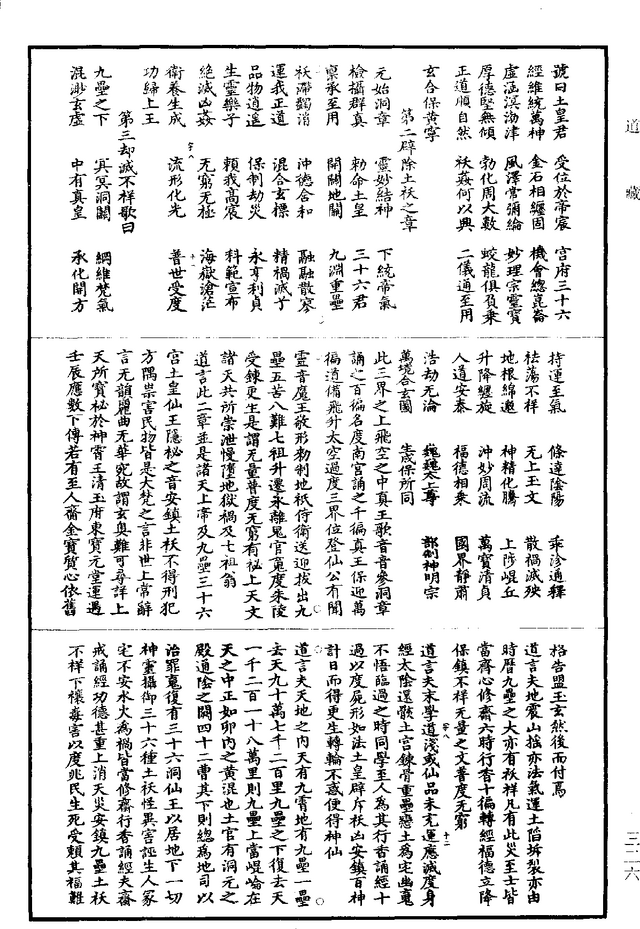 道藏
三二六
號曰土皇君 受位於帝宸 宮府三十六
經維統萬神 金石相纏固 機會總崑崙
虛涵溟渤津 風澤常彌綸 妙理宗靈寶
厚德堅無傾 勃化周大數 蛟龍俱負乘
正道順自然 祅姦何以興 二儀通至用
玄合保黄寧
第二辟除土祅之章
元始洞章 靈妙結神 下統帝氣
檢攝群真 勑命土皇 三十六君
禀承至用 開闢地關 九淵重壘
祅滯蠲消 沖德含和 融融散寥
運我正道 混合玄標 精禍滅于
品物逍遙 保制劫災 永亨利貞
生靈樂子 賴我高宸 科範宣布
絶滅凶姦 无窮无極 海嶽滄茫
衛養生成 流形化光 普世受度
功歸上王
第三却滅不祥歌曰
九壘之下 冥冥洞闢 綱維梵氣
混渺玄虛 中有真皇 承化開方
持運至氣 條達陰陽 乘沴通釋
祛蕩不祥 无上玉文 散禍滅殃
地根綿邈 神精化騰 上陟崐丘
升降纏旋 沖妙周流 萬寶清貞
人道安泰 福德相乘 國界静肅
浩劫无淪 巍巍太上尊 部制神明宗
萬境合玄圖 生成保所同
此三界之上飛空之中真王歌音音參洞章
誦之百徧名度南宮誦之千徧真王保迎萬
徧道備飛升太空過度三界位登仙公有聞
靈音魔王敬形勑制地祇侍衛送迎拔出九
壘五苦八難七祖升遷永離鬼官䰟度朱陵
受鍊更生是謂无量普度无窮有祕上天文
諸天共所崇泄慢墮地獄禍及七祖翁
道言此二章並是諸天上帝及九壘三十六
宮土皇仙王隱秘之音安鎮土祅不得刑犯
方隅祟害民物皆是大梵之言非世上常辭
言无韻麗曲无華宛故謂玄奥難可尋詳上
天所寶祕於神霄王清玉府東寶元堂運遇
壬辰應數下傳若有至人齋金寶質心依舊
格告盟玉玄然後而付焉
道言夫地震山搖亦法氣運土陷坼裂亦由
時曆九壘之大亦有祅祥凡有此災至士皆
當齋心修齋六時行香十徧轉經福德立降
保鎮不祥无量之文普度无窮
道言夫末學道淺或仙品未充運應滅度身
經太陰還骸土宮鍊骨重壘戀土為宅幽䰟
不悟臨過之時同學至人為其行香誦經十
過以度屍形如法土皇辟斥祅凶安鎮百神
計日而得更生轉輪不惑便得神仙
道言夫天地之内天有九霄地有九壘一壘
去天九十萬七千二百里九壘之下復去天
一千二百一十八萬里則九壘上當崐崘在
天之中正如卵内之黄混也土官有洞元之
殿通陰之闕四十二曹其下則總為地司以
治罪䰟復有三十六洞仙王以居地下一切
神靈攝御三十六種土祅恠異害誣生人冢
宅不安水火為禍皆當修齋行香誦經夫齋
戒誦經功德甚重上消天災安鎮九壘土祅
不祥下禳毒害以度兆民生死受賴其福難